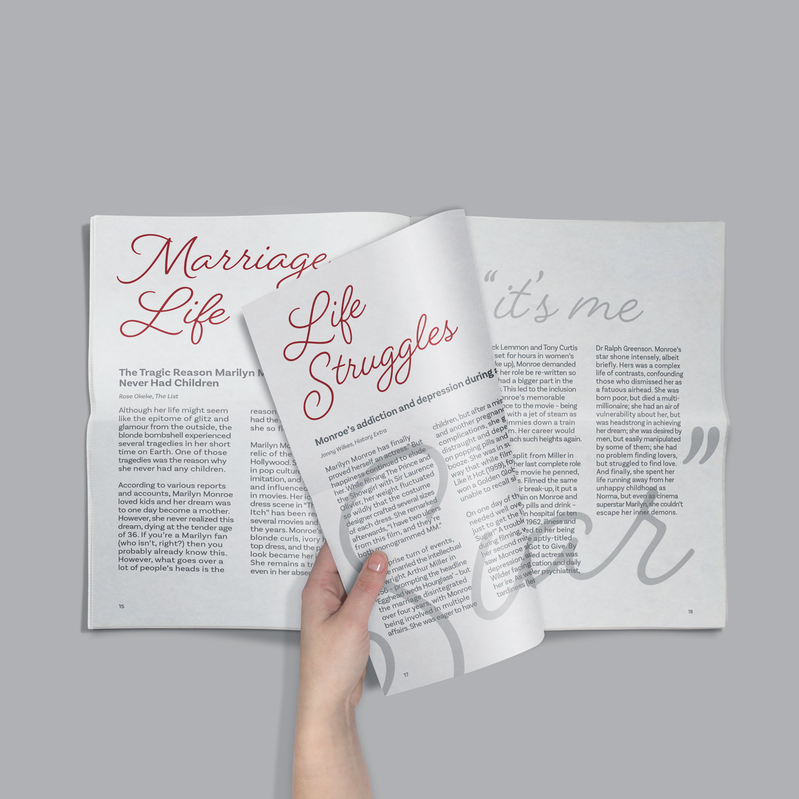 Marriage
Life
The Tragic Reason Marilyn M
Never Had Children
Rose Okeke, The List
Although her life might seem
like the epitome of glitz and
glamour from the outside, the
blonde bombshell experienced
several tragedies in her short
time on Earth. One of those
tragedies was the reason why
she never had any children.
According to various reports
and accounts, Marilyn Monroe
loved kids and her dream was
to one day become a mother.
However, she never realized this
dream, dying at the tender age
of 36. If you're a Marilyn fan
(who isn't, right?) then you
probably already know this.
However, what goes over a
lot of people's heads is the
reason
had the
she so f
Marilyn Mo
relic of the
Hollywood. S
in pop cultur
imitation, and
and influenced
in movies. Her ic
dress scene in "T
Itch" has been re
several movies and
the years. Monroe's
blonde curls, ivory
top dress, and the p
look became her
She remains a tr
even in her abse
15
Life
Struggles
Monroe's addiction and depression during
Jenny Wilkes, History Extra
Marilyn Monroe has finally
proved herself an actor. But
happiness continued to elude
her. While filming The Prince and
the Showgirl with Sir Laurence
Olivier, her weight fluctuated
so wildly that the costume
designer crafted several sizes
of each dress. She remarked
afterwards, "I have two ulcers
from this film, and they're
both monogrammed MM."
prise turn of events,
married the intellectual
wright Arthur Miller in
56 – prompting the headline
"Egghead weds Hourglass" – but
the marriage disintegrated
over four years, with Monroe
being involved in multiple
affairs. She was eager to have
children, but after a mis
and another pregnan
complications, she g
distraught and depe
on popping pills and
booze. She was in s
way that, while fil
Like it Hot (1959), fo
won a Golden Glob
unable to recall si
On one day of th
needed well ove
just to get the l
Sugar." A troubl
during filming,
her second mi
saw Monroe
depression
Wilder
her ire. As
tardiness
17
"it's me
Star"
ck Lemmon and Tony Curtis
set for hours in women's
ke up), Monroe demanded
her role be re-written so
had a bigger part in the
This led to the inclusion
Monroe's memorable
ce to the movie – being
with a jet of steam as
mmies down a train
m. Her career would
ch such heights again.
split from Miller in
her last complete role
s. Filmed the same
ir break-up, it put a
in on Monroe and
pills and drink –
n hospital for ten
1962, illness and
ed to her being
ly-titled
Got to Give.
ed actress was
facing
cation and
psychiatrist,
Dr Ralph Greenson. Monroe's
star shone intensely, albeit
briefly. Hers was a complex
life of contrasts, confounding
those who dismissed her as
a fatuous airhead. She was
born poor, but died a multi-
millionaire; she had an air of
vulnerability about her, but
was headstrong in achieving
her dream; she was desired by
men, but easily manipulated
by some of them; she had
no problem finding lovers,
but struggled to find love.
And finally, she spent her
life running away from her
unhappy childhood as
Norma, but even as cinema
superstar Marilyn, she couldn't
escape her inner demons.
18